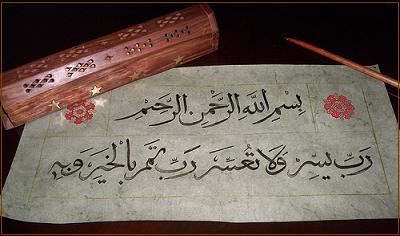 بِسْمِ اللّٰهِ الرَّحْمٰنِ الرَّحِيْمِ
رَبِّ يَسِّرْ وَلَا تُعَسِّرْ رَبِّ تَمِّمْ بِالْخَيْرِ وَبِهِ